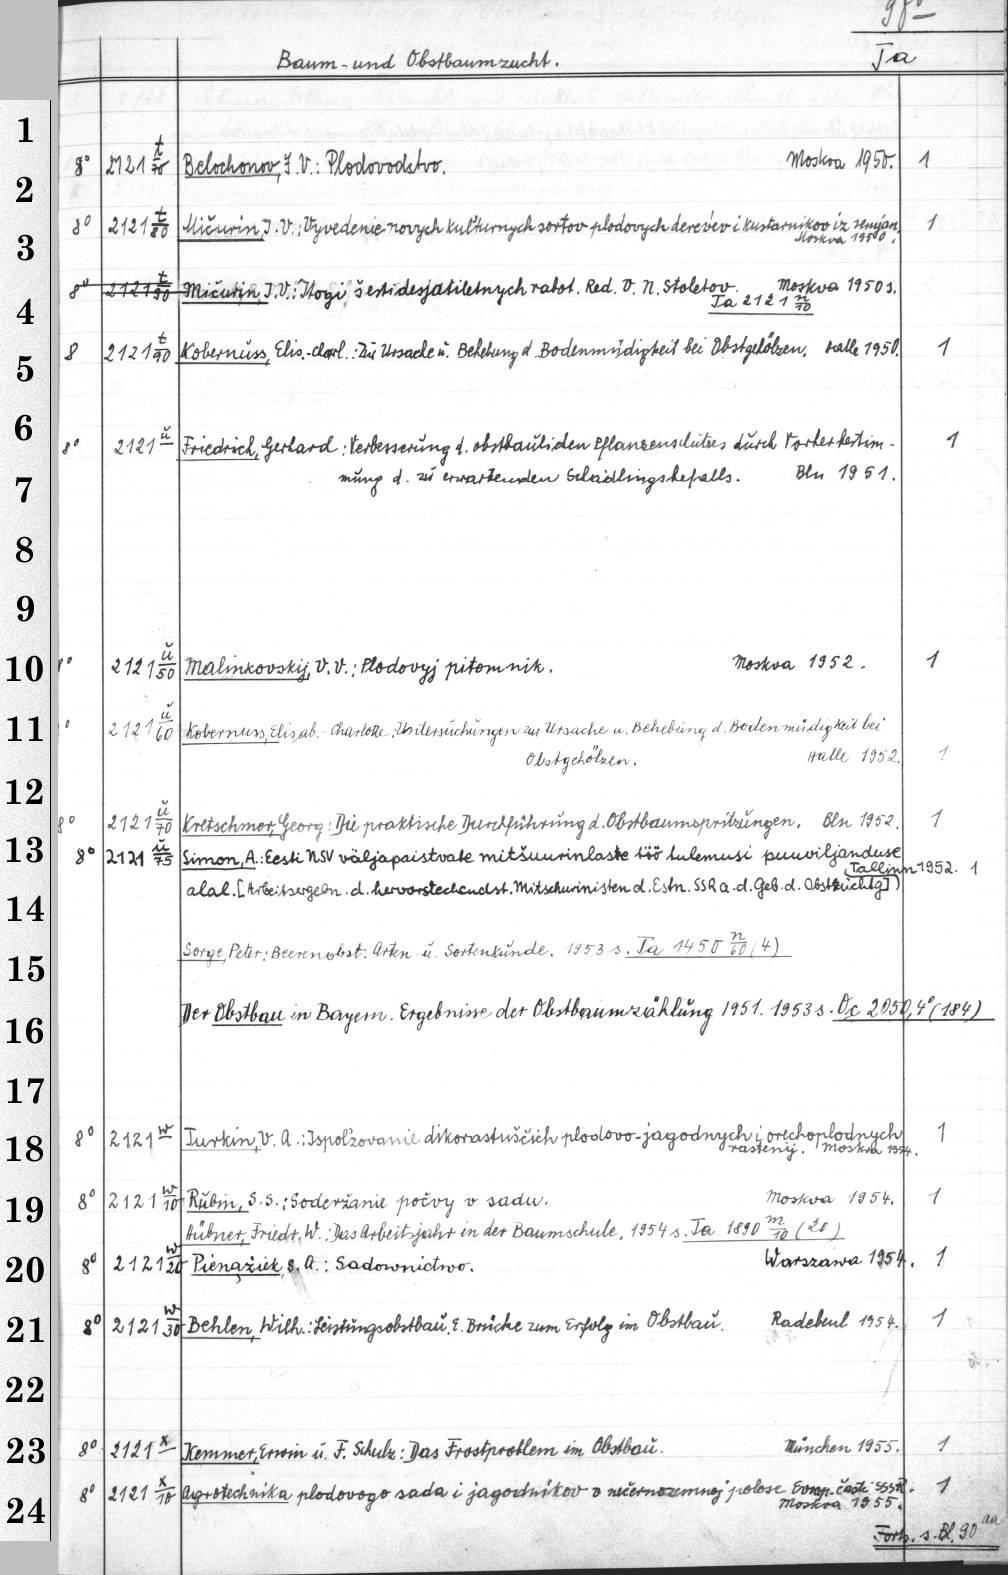 Baum- und Obstbaumzucht.
Ta
1
8° 2121 t/70 Belochonov, I. V.: Plodovodstvo. Moskva 1950. 1
2
8° 2121 t/80 Mičurin, I. V.: Vyvedenie novych kul'turnych sortov plodovych derev'ev i kustarnikov iz semjan. 1
Moskva 1950.
3
8° 2121 t/90 Mičurin, I. V.: Itogi šestidesjatiletnych rabot. Red. V. N. Stoletov. Moskva 1950 s.
Ta 2121 n/70
4
8 2121 t/90 Kobernuss, Elis.-Charl.: Zur Ursache u. Behebung d. Bodenmüdigkeit bei Obstgehölzen. Halle 1950. 1
5
6
8° 2121 u Friedrich, Gerhard: Verbesserung d. obstbaulichen Pflanzenschutzes durch Vorherbestim- 1
mung d. zu erwartenden Schädlingsbefalls. Bln 1951.
7
8
9
10
8° 2121 u/50 Malinkovskij, V. V.: Plodovyj pitomnik. Moskva 1952. 1
11
8° 2121 u/60 Kobernuss, Elisab.-Charlotte: Untersuchungen zur Ursache u. Behebung d. Bodenmüdigkeit bei
Obstgehölzen. Halle 1952. 1
12
8° 2121 u/70 Kretschmer, Georg: Die praktische Durchführung d. Obstbaumspritzungen. Bln 1952. 1
13
8° 2121 u/75 Simon, A.: Eesti NSV väljapaistvate mitšuurinlaste töö tulemusi puuviljanduse
alal. [Arbeitsergebn. d. hervorstechendst. Mitschurinisten d. Estn. SSR a. d. Geb. d. Obstzüchtg] Tallinn 1952. 1
14
Sorge, Peter: Beerenobst. Arten u. Sortenkunde. 1953 s. Ta 1450 n/60 (4)
15
Der Obstbau in Bayern. Ergebnisse der Obstbaumzählung 1951. 1953 s. Oc 2050, 4° (184)
16
17
18
8° 2121 w Turkin, V. A.: Ispol'zovanie dikorastuščich plodovo-jagodnych i orechoplodnych 1
rastenij. Moskva 1954.
19
8° 2121 w/10 Rubin, S. S.: Soderžanie počvy v sadu. Moskva 1954. 1
Hübner, Friedr. W.: Das Arbeitsjahr in der Baumschule. 1954 s. Ta 1890 m/10 (20)
20
8° 2121 w/20 Pieniążek, S. A.: Sadownictwo. Warszawa 1954. 1
21
8° 2121 w/30 Behlen, Wilh.: Leistungsobstbau. E. Brücke zum Erfolg im Obstbau. Radebeul 1954. 1
22
23
8° 2121 x Kemmer, Erwin u. F. Schulz: Das Frostproblem im Obstbau. München 1955. 1
24
8° 2121 x/10 Agrotechnika plodovogo sada i jagodnikov v nečernozemnoj polose Evrop. časti SSSR. 1
Moskva 1955.
Forts. s. Bl. 90 aa